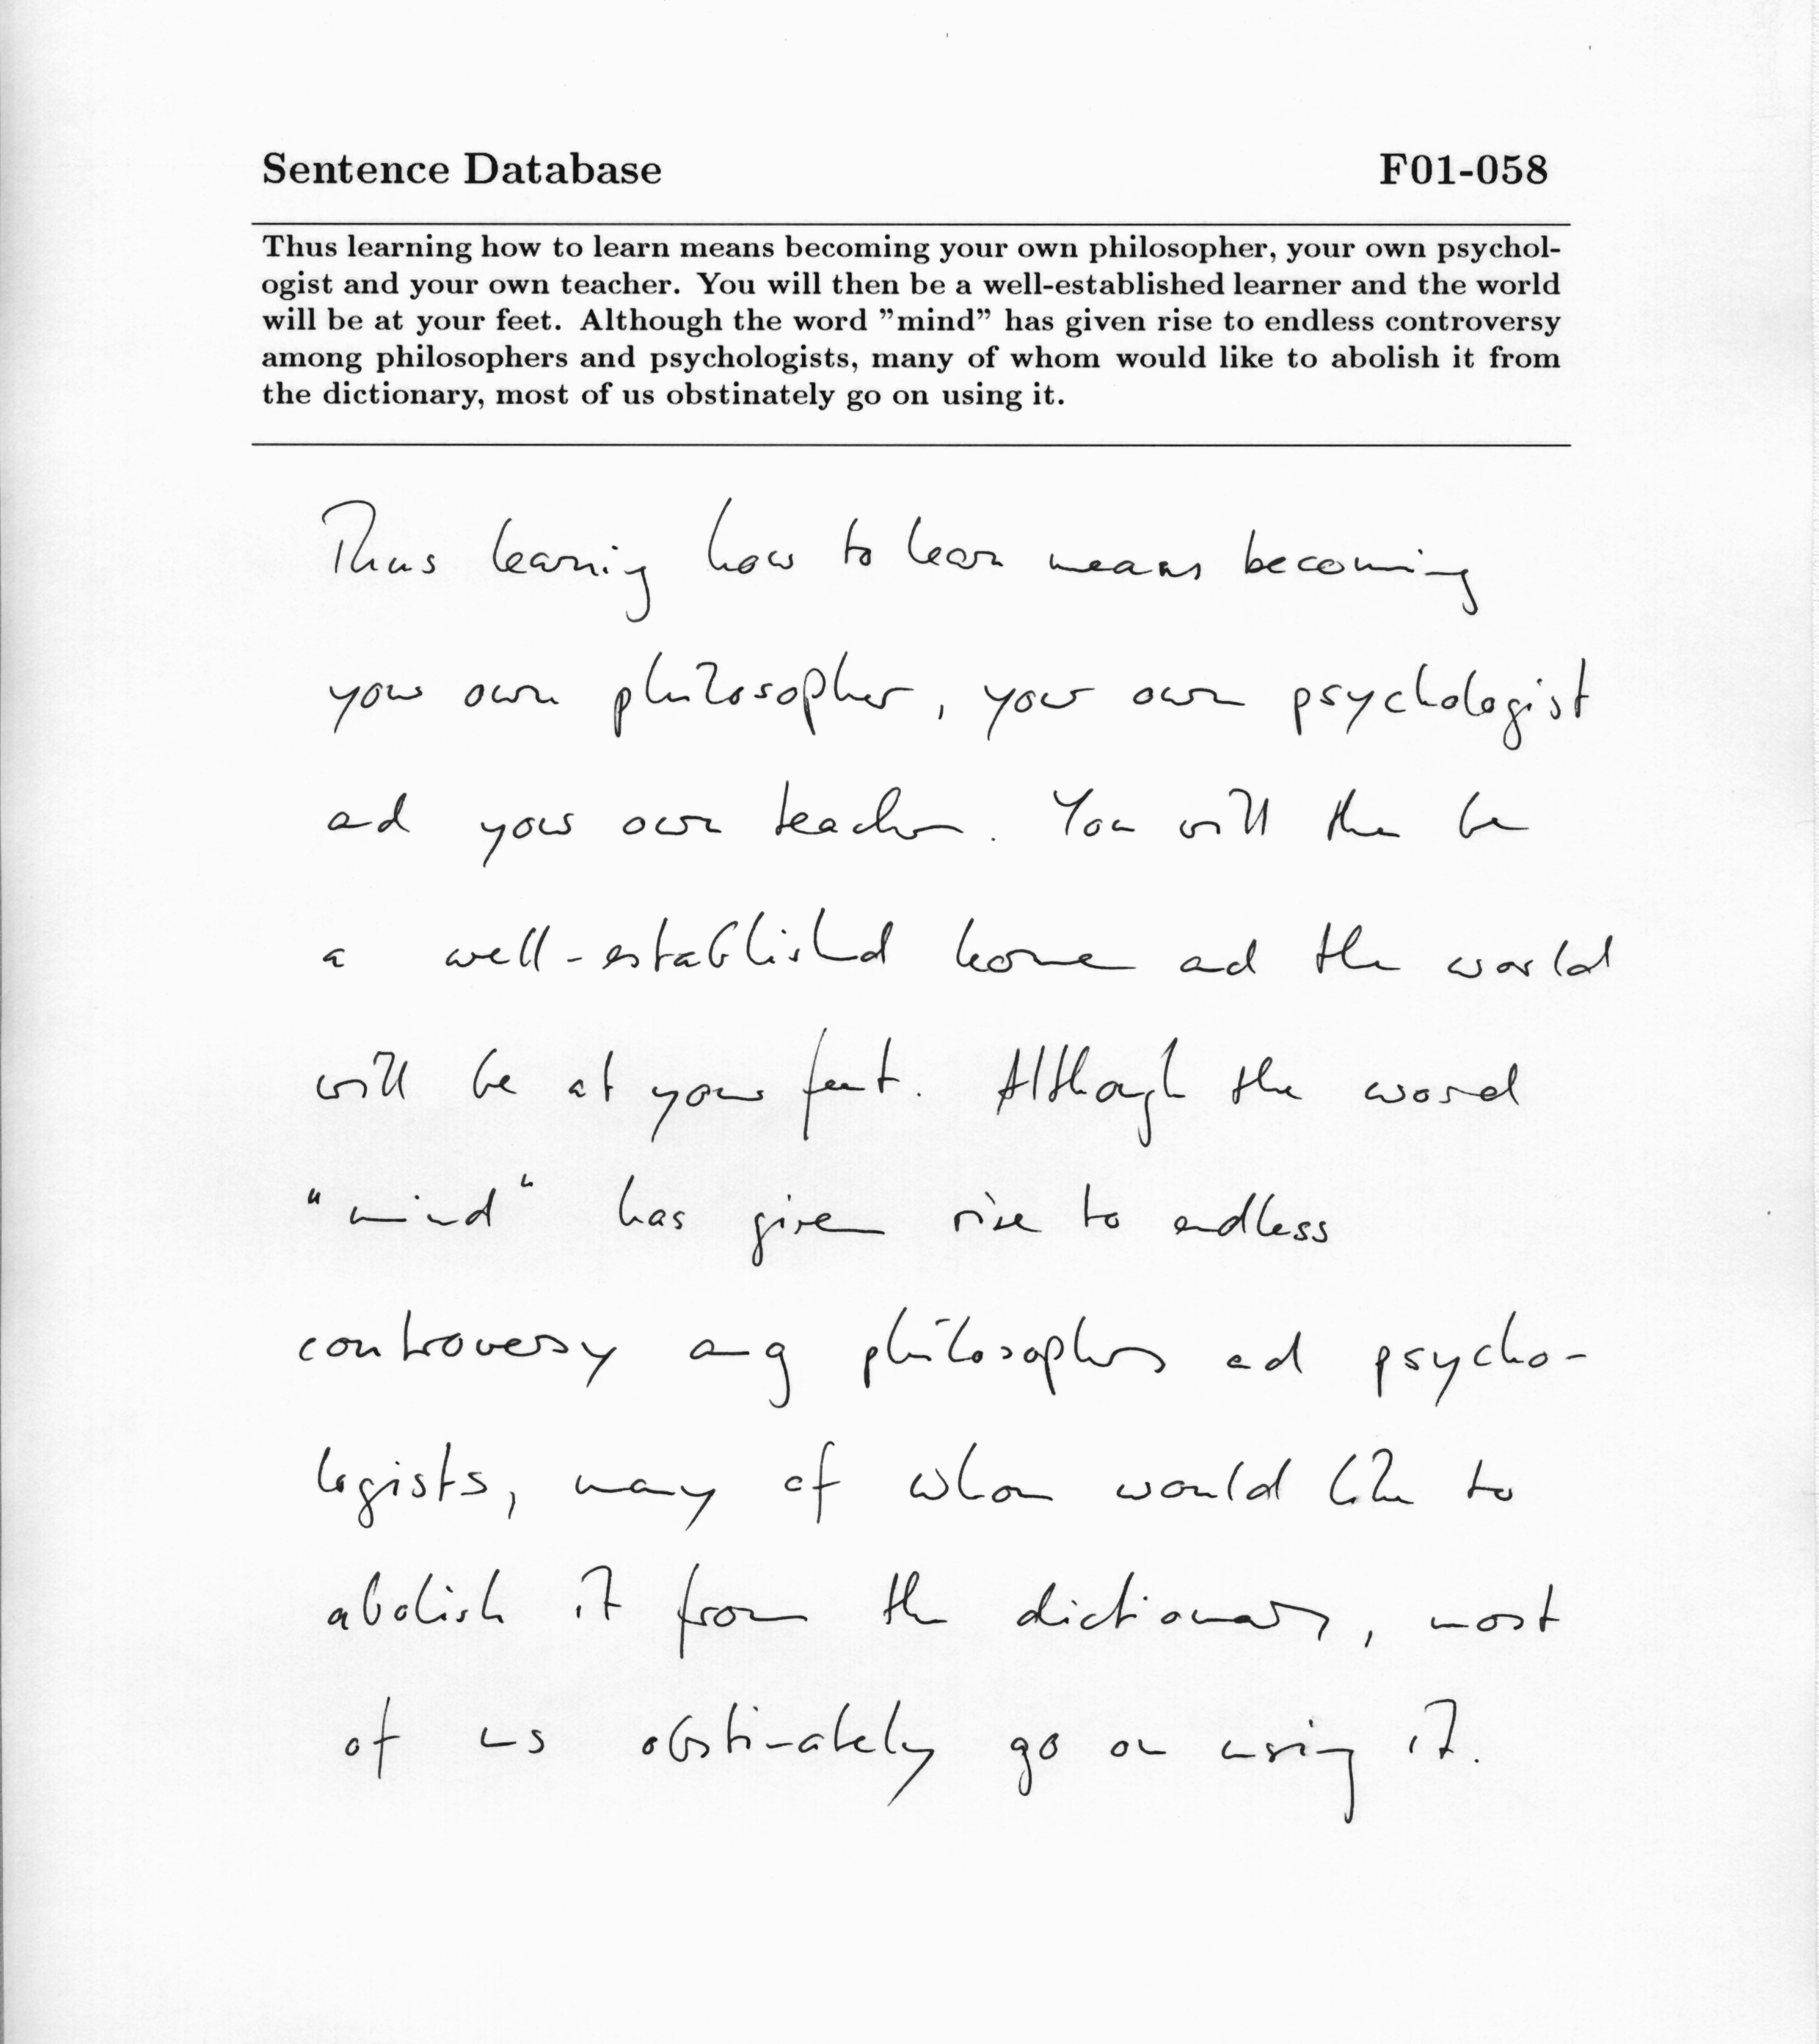 Sentence Database F01-058
Thus learning how to learn means becoming your own philosopher, your own psychol-
ogist and your own teacher. You will then be a well-established learner and the world
will be at your feet. Although the word ”mind” has given rise to endless controversy
among philosophers and psychologists, many of whom would like to abolish it from
the dictionary, most of us obstinately go on using it.
Thus learning how to learn means becoming
your own philosopher, your own psychologist
and your own teacher. You will then be
a well-established learner and the world
will be at your feet. Although the word
"mind" has given rise to endless
controversy among philosophers and psycho-
logists, many of whom would like to
abolish it from the dictionary, most
of us obstinately go on using it.